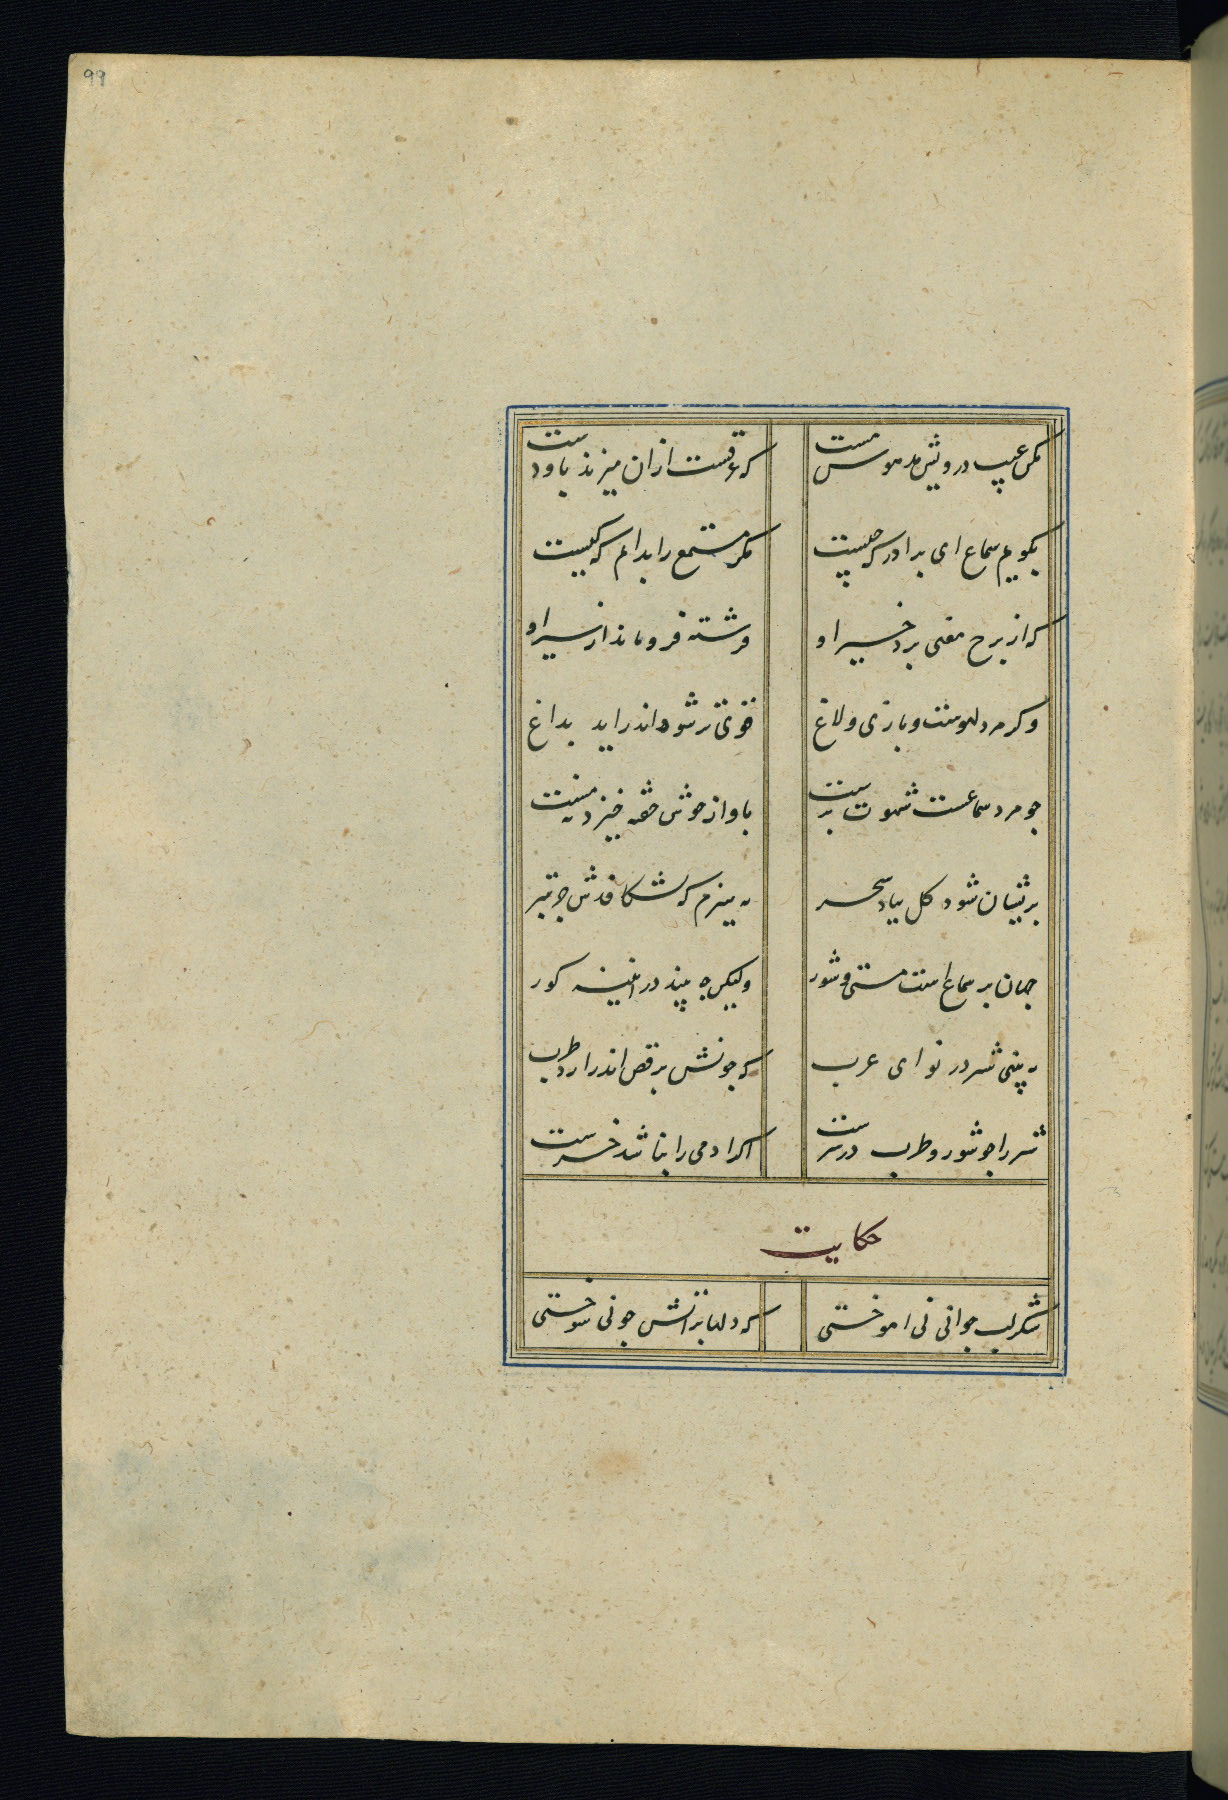 99
مکن عیب درویش مدهوش مست که غرقست ازان میزند پا و دست
بکویم سماع ای برادر که چیست مکر مستمع را بدانم که کیست
کر از برج معنی پرد طیر او فرشته فرو ماند از سیر او
وکر مرد لهوست و بازی و لاغ قوی تر شود اندر اید بداغ
چو مرد سماعست شهوت پرست باواز خوش خفته خیزد نه مست
پریشان شود کل بباد سحر نه هیزم که نشکافدش جز تبر
جهان پر سماع است مستی و شور ولیکن چه بیند در اینه کور
نه بینی شتر در نوای عرب که چونش برقص اندر ارد طرب
شتر را چو شور و طرب در سرست اکر ادمی را نباشد خرست
حکایت
شکر لب جوانی نی اموختی که دلها بر اتش چو نی سوختی